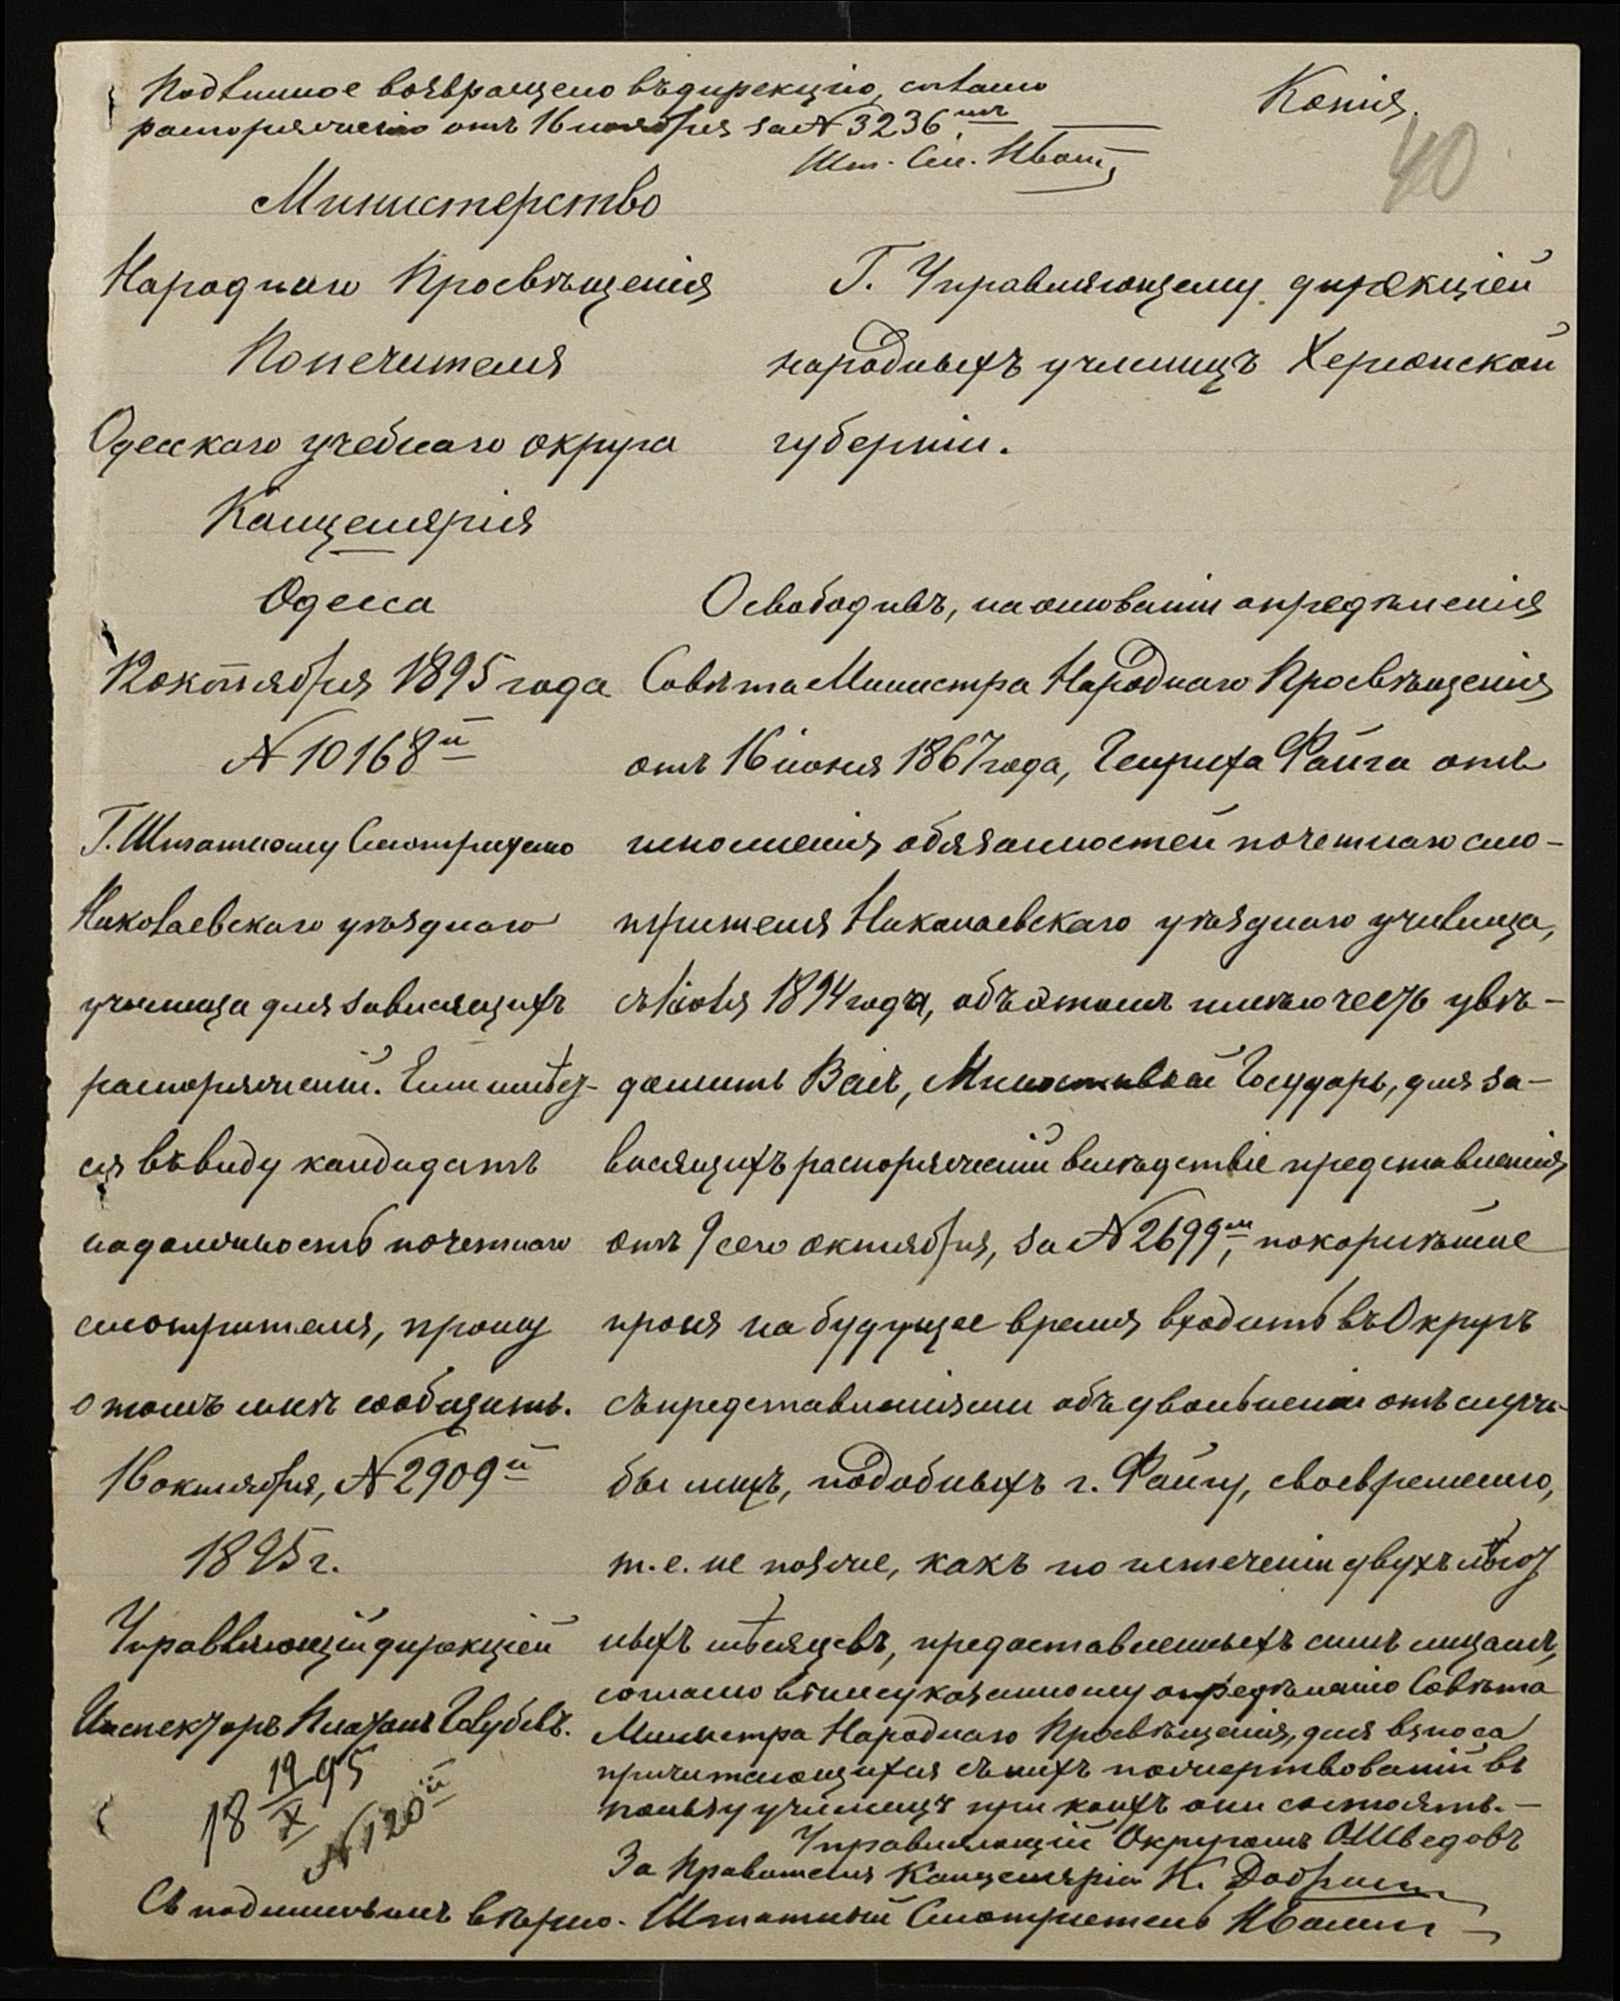 Подлинное возвращено въ дирекцію, согласно
распоряженію отъ 16 ноября за № 3236мъ
Шт. См. Иванъ
Копія.
40
Министерство
Народнаго Просвѣщенія
Попечителя
Одесскаго учебнаго округа
Канцелярія
Одесса
12 октября 1895 года
№ 10168й
Г. Штатному Смотрителю
Николаевскаго уѣзднаго
училища для зависящихъ
распоряженій. Если имѣет-
ся въ виду кандидатъ
на должность почетнаго
смотрителя, прошу
о томъ мнѣ сообщить.
16 октября, № 2909й
1895 г.
Управляющій дирекціей
Инспекторъ Платонъ Голубевъ.
18 19/X 95
№ 120й
Г. Управляющему дирекціей
народныхъ училищъ Херсонской
губерніи.
Освободивъ, на основаніи опредѣленія
Совѣта Министра Народнаго Просвѣщенія
отъ 16 іюня 1867 года, Генриха Файга отъ
исполненія обязанностей почетнаго смо-
трителя Николаевскаго уѣзднаго училища,
съ 1894 года, объ этомъ имѣю честь увѣ-
домить Васъ, Милостивый Государь, для за-
висящихъ распоряженій вслѣдствіе представленія
отъ 9 сего октября, за № 2699м, покорнѣйше
прося на будущее время входить въ Округъ
съ представленіями объ увольненіи отъ служ-
бы лицъ, подобныхъ г. Файгу, своевременно,
т. е. не позже, какъ по истеченіи двухъ льгот
ныхъ мѣсяцевъ, предоставленныхъ симъ лицамъ,
согласно вышеуказанному опредѣленію Совѣта
Министра Народнаго Просвѣщенія, для взноса
причитающихся съ нихъ пожертвованій въ
пользу училищъ при коихъ они состоятъ. —
Управляющій Округомъ О Шведовъ
За Правителя Канцеляріи К.
Съ подлиннымъ вѣрно. Штатный Смотритель